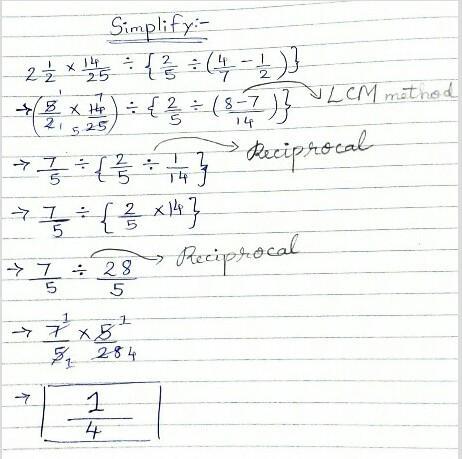 Simplify:-
2 1/2 × 14/25 ÷ { 2/5 ÷ ( 4/7 − 1/2 ) }
→ ( 5/2 × 14/25 ) ÷ { 2/5 ÷ ( 8−7/14 ) } → LCM method
1 7
1 5
→ 7/5 ÷ { 2/5 ÷ 1/14 } → Reciprocal
→ 7/5 ÷ { 2/5 ×14 }
→ 7/5 ÷ 28/5 → Reciprocal
→ 7/5 × 5/28
1 1
1 4
→ 1/4